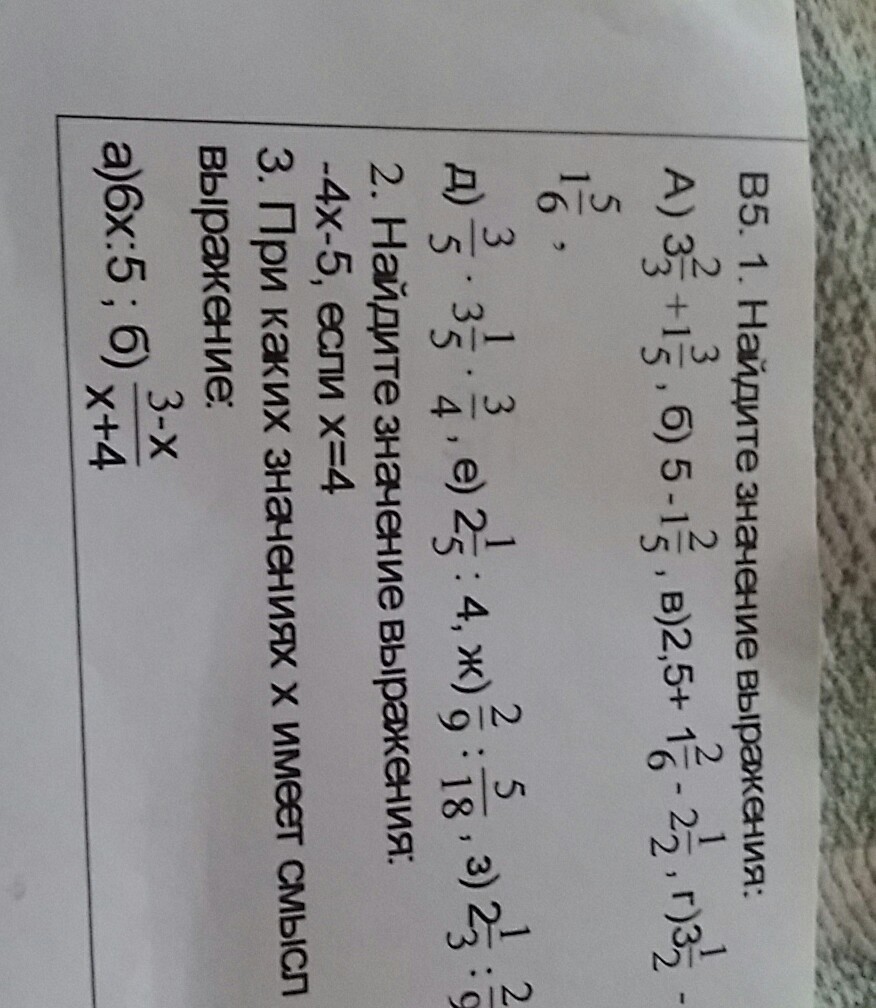 В5. 1. Найдите значение выражения:
А) 3 2/3 + 1 3/5 , б) 5 - 1 2/5 , в)2,5+ 1 2/6 - 2 1/2 , г)3 1/2 -
1 5/6 ,
д) 3/5 · 3 1/5 · 3/4 , е) 2 1/5 : 4, ж) 2/9 : 5/18 , з) 2 1/3 : 2/9
2. Найдите значение выражения:
-4х-5, если х=4
3. При каких значениях х имеет смысл
выражение:
а)6х:5 ; б) 3-х/х+4